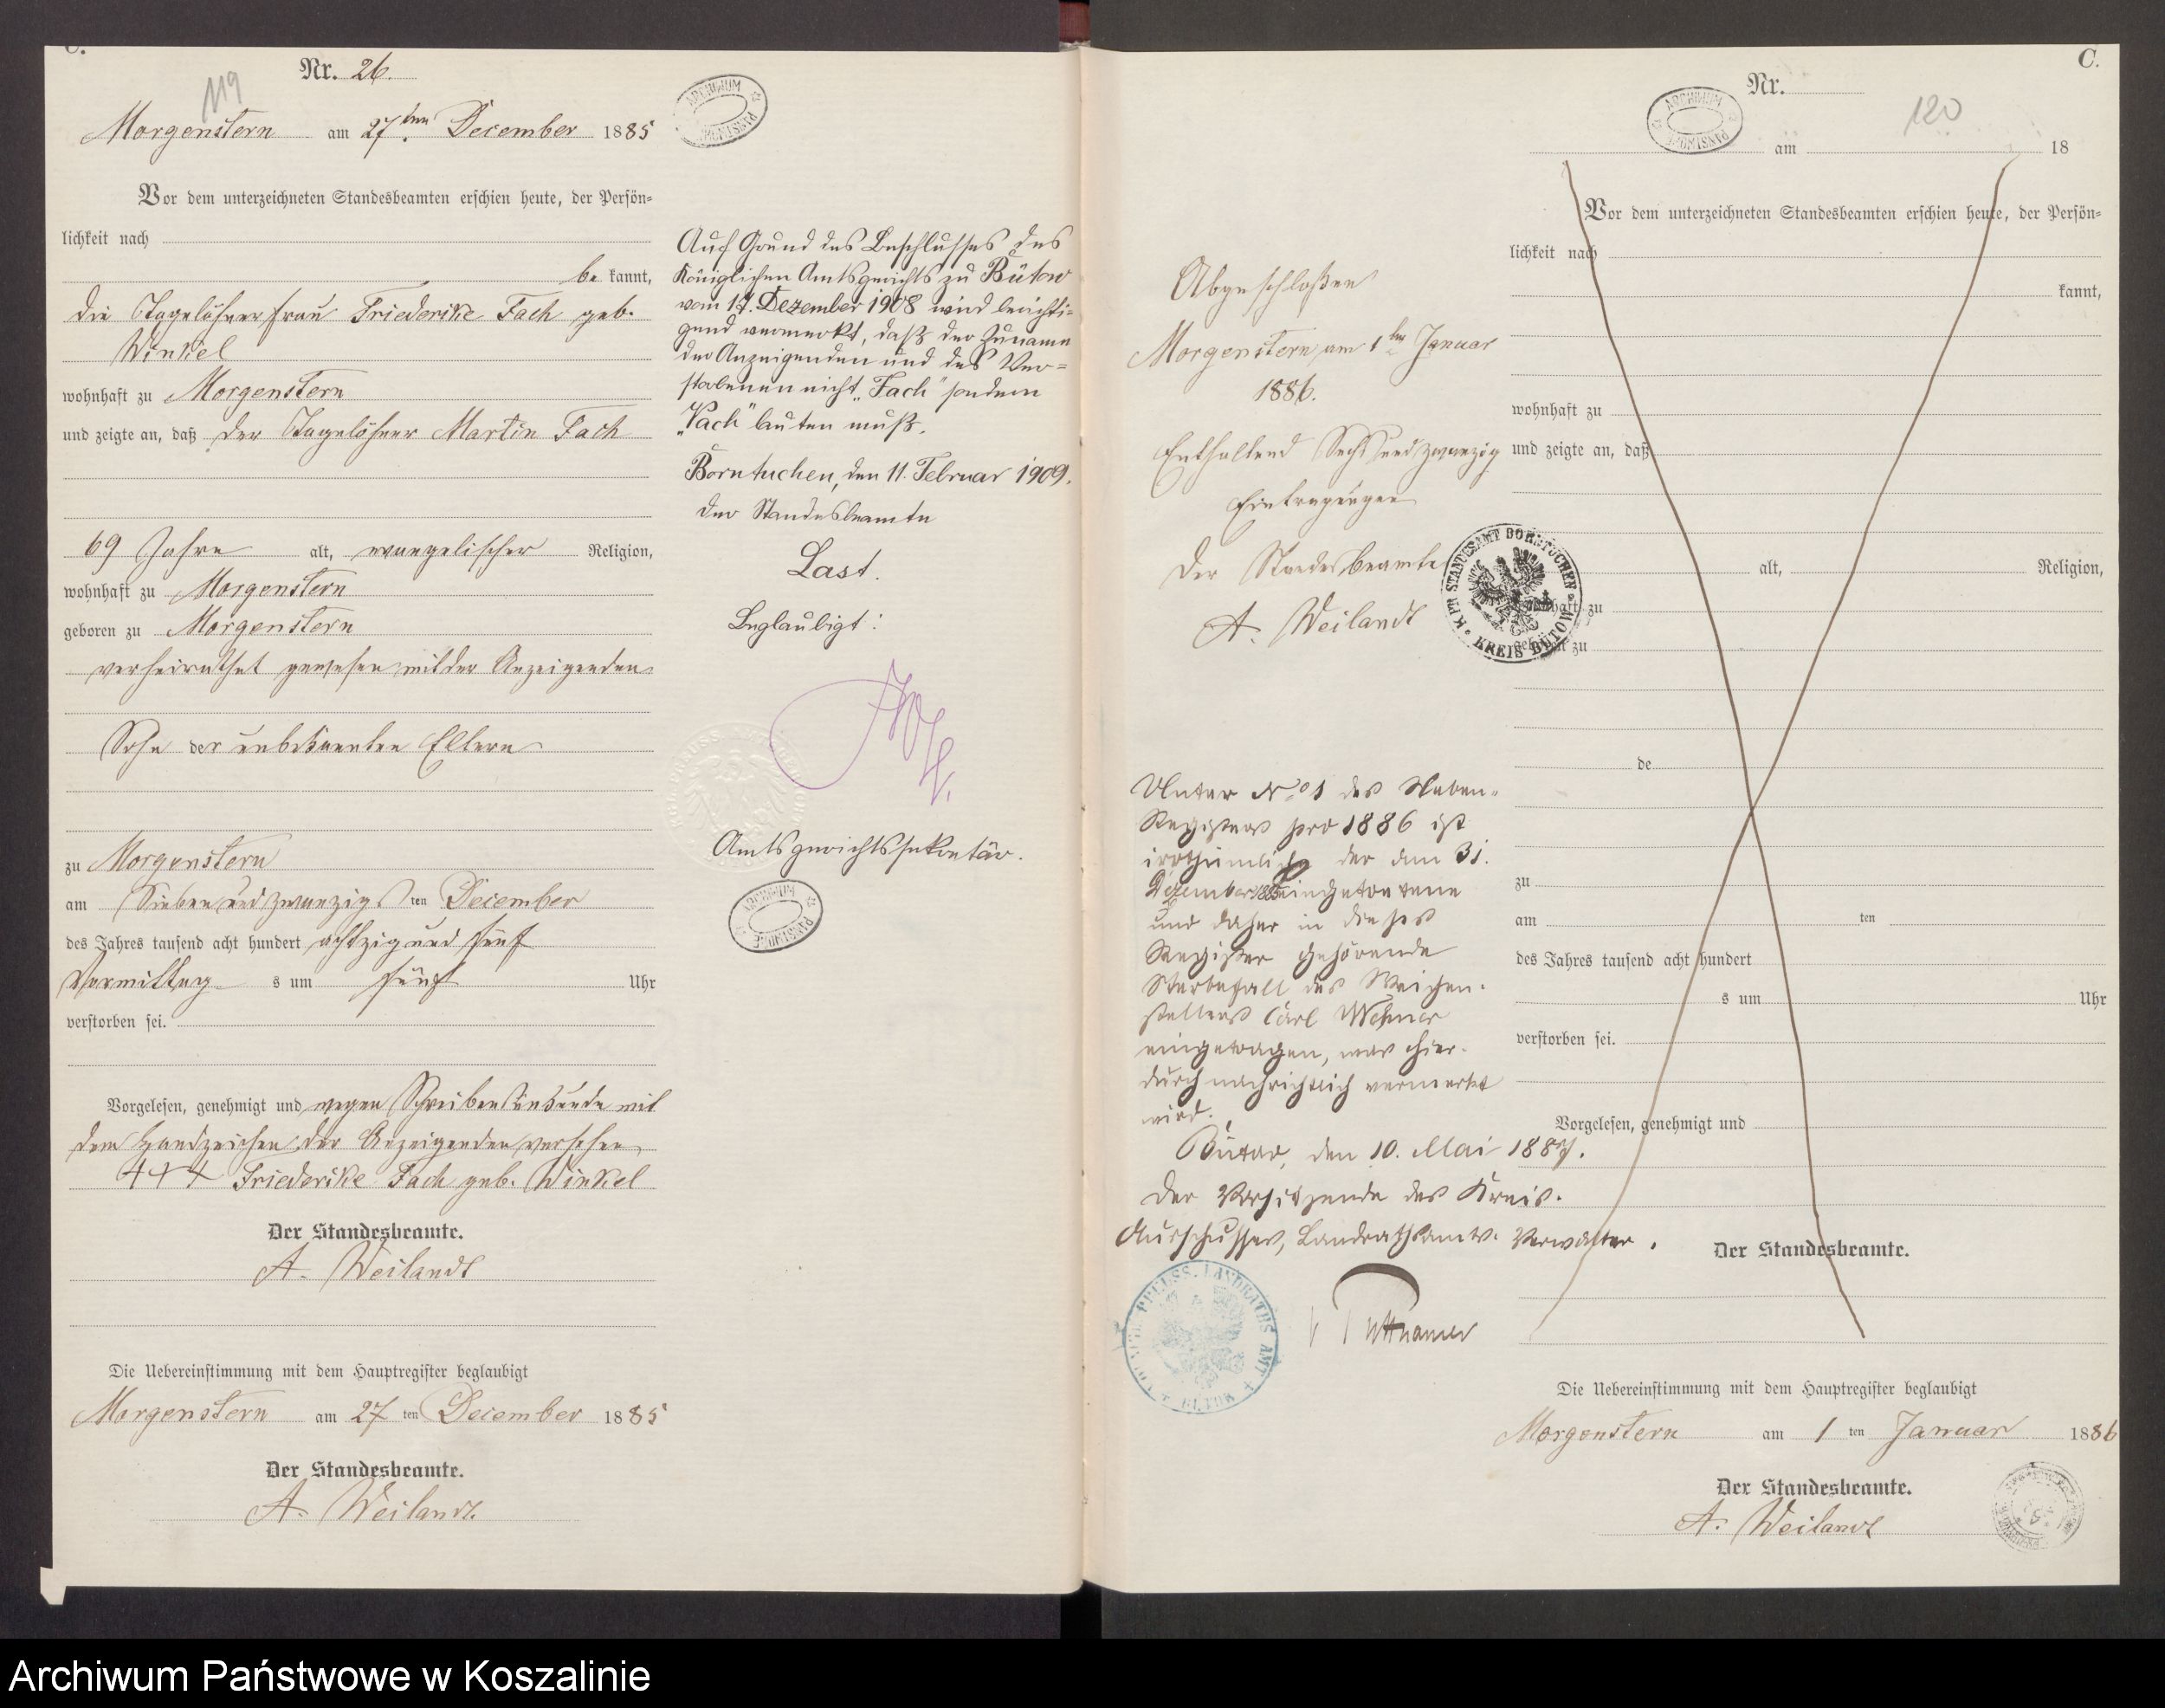 C.
Nr. 26.
119
Morgenstern am 27ten December 1885
Vor dem unterzeichneten Standesbeamten erschien heute, der Persön=
lichkeit nach
be kannt,
die Tagelöhnerfrau Friederike Fach geb.
Winkel
wohnhaft zu Morgenstern
und zeigte an, daß der Tagelöhner Martin Fach
69 Jahre alt, evangelischer Religion,
wohnhaft zu Morgenstern
geboren zu Morgenstern
verheirathet gewesen mit der Anzeigenden
Sohn der unbekannten Eltern
zu Morgenstern
am Sieben und zwanzigs ten December
des Jahres tausend acht hundert achtzig und fünf
Vormittag s um fünf Uhr
verstorben sei.
Vorgelesen, genehmigt und wegen Schreibensunkunde mit
dem Handzeichen der Anzeigenden versehen
+++ Friederike Fach geb. Winkel
Der Standesbeamte.
A. Weilandt
Die Uebereinstimmung mit dem Hauptregister beglaubigt
Morgenstern am 27 ten December 1885
Der Standesbeamte.
A. Weilandt.
ARCHIWUM PAŃSTWOWE
Auf Grund des Beschlusses des
Königlichen Amtsgerichts zu Bütow
vom 17. Dezember 1908 wird berichti=
gend vermerkt, daß der Zuname
der Anzeigenden und des Ver=
storbenen nicht „Fach" sondern
„Vach" lauten muß.
Borntuchen, den 11. Februar 1909.
Der Standesbeamte
Last.
Beglaubigt:
Amtsgerichtssekretär.
ARCHIWUM PAŃSTWOWE
C.
Nr.
120
ARCHIWUM PAŃSTWOWE
am 18
Vor dem unterzeichneten Standesbeamten erschien heute, der Persön=
lichkeit nach
kannt,
wohnhaft zu
und zeigte an, daß
alt, Religion,
wohnhaft zu
geboren zu
de
zu
am ten
des Jahres tausend acht hundert
s um Uhr
verstorben sei.
Vorgelesen, genehmigt und
Der Standesbeamte.
Abgeschloßen
Morgenstern, am 1ten Januar
1886.
Enthaltend Sechs und zwanzig
Eintragungen
Der Standesbeamte
A. Weilandt
K. PR. STANDESAMT BORNTUCHEN
KREIS BÜTOW
Unter No 1 des Neben=
Registers pro 1886 ist
irrthümlich der am 31.
Dezember 1885 eingetretene
und daher in dieses
Register gehörende
Sterbefall des Weichen=
stellers Carl Wehner
eingetragen, was hier=
durch nachrichtlich vermerkt
wird.
Bütow, den 10. Mai 1887.
Der Vorsitzende des Kreis=
Ausschusses, Landrathsamts= Verwalter.
Puttkamer
PREUSS. LANDRATHS AMT
BÜTOW
Die Uebereinstimmung mit dem Hauptregister beglaubigt
Morgenstern am 1 ten Januar 1886
Der Standesbeamte.
A. Weilandt
Archiwum Państwowe w Koszalinie